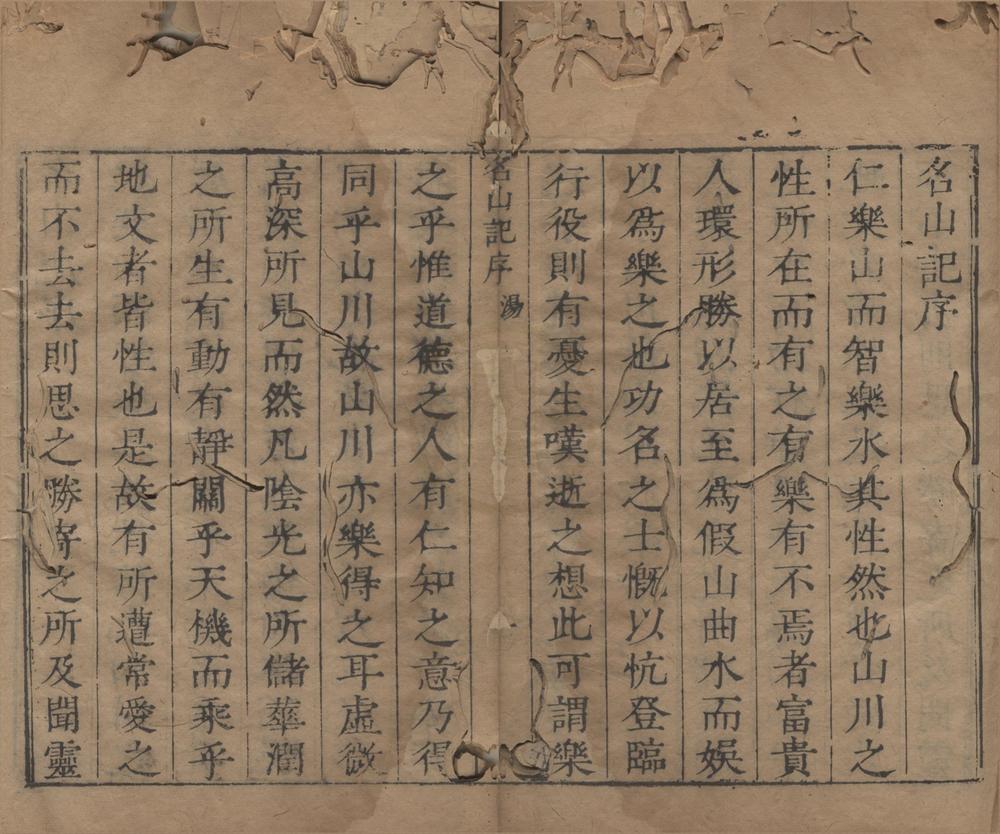 名山記序
仁樂山而智樂水其性然也山川之
性所在而有之有樂有不焉者富貴
人環形勝以居至爲假山曲水而娛
以爲樂之也功名之士慨以忼登臨
行役則有憂生嘆逝之想此可謂樂
名山記序 湯
之乎惟道德之人有仁知之意乃得
同乎山川故山川亦樂得之耳虛微
高深所見而然凡陰光之所儲華潤
之所生有動有靜關乎天機而乘乎
地文者皆性也是故有所遭常愛之
而不去去則思之勝寄之所及聞靈